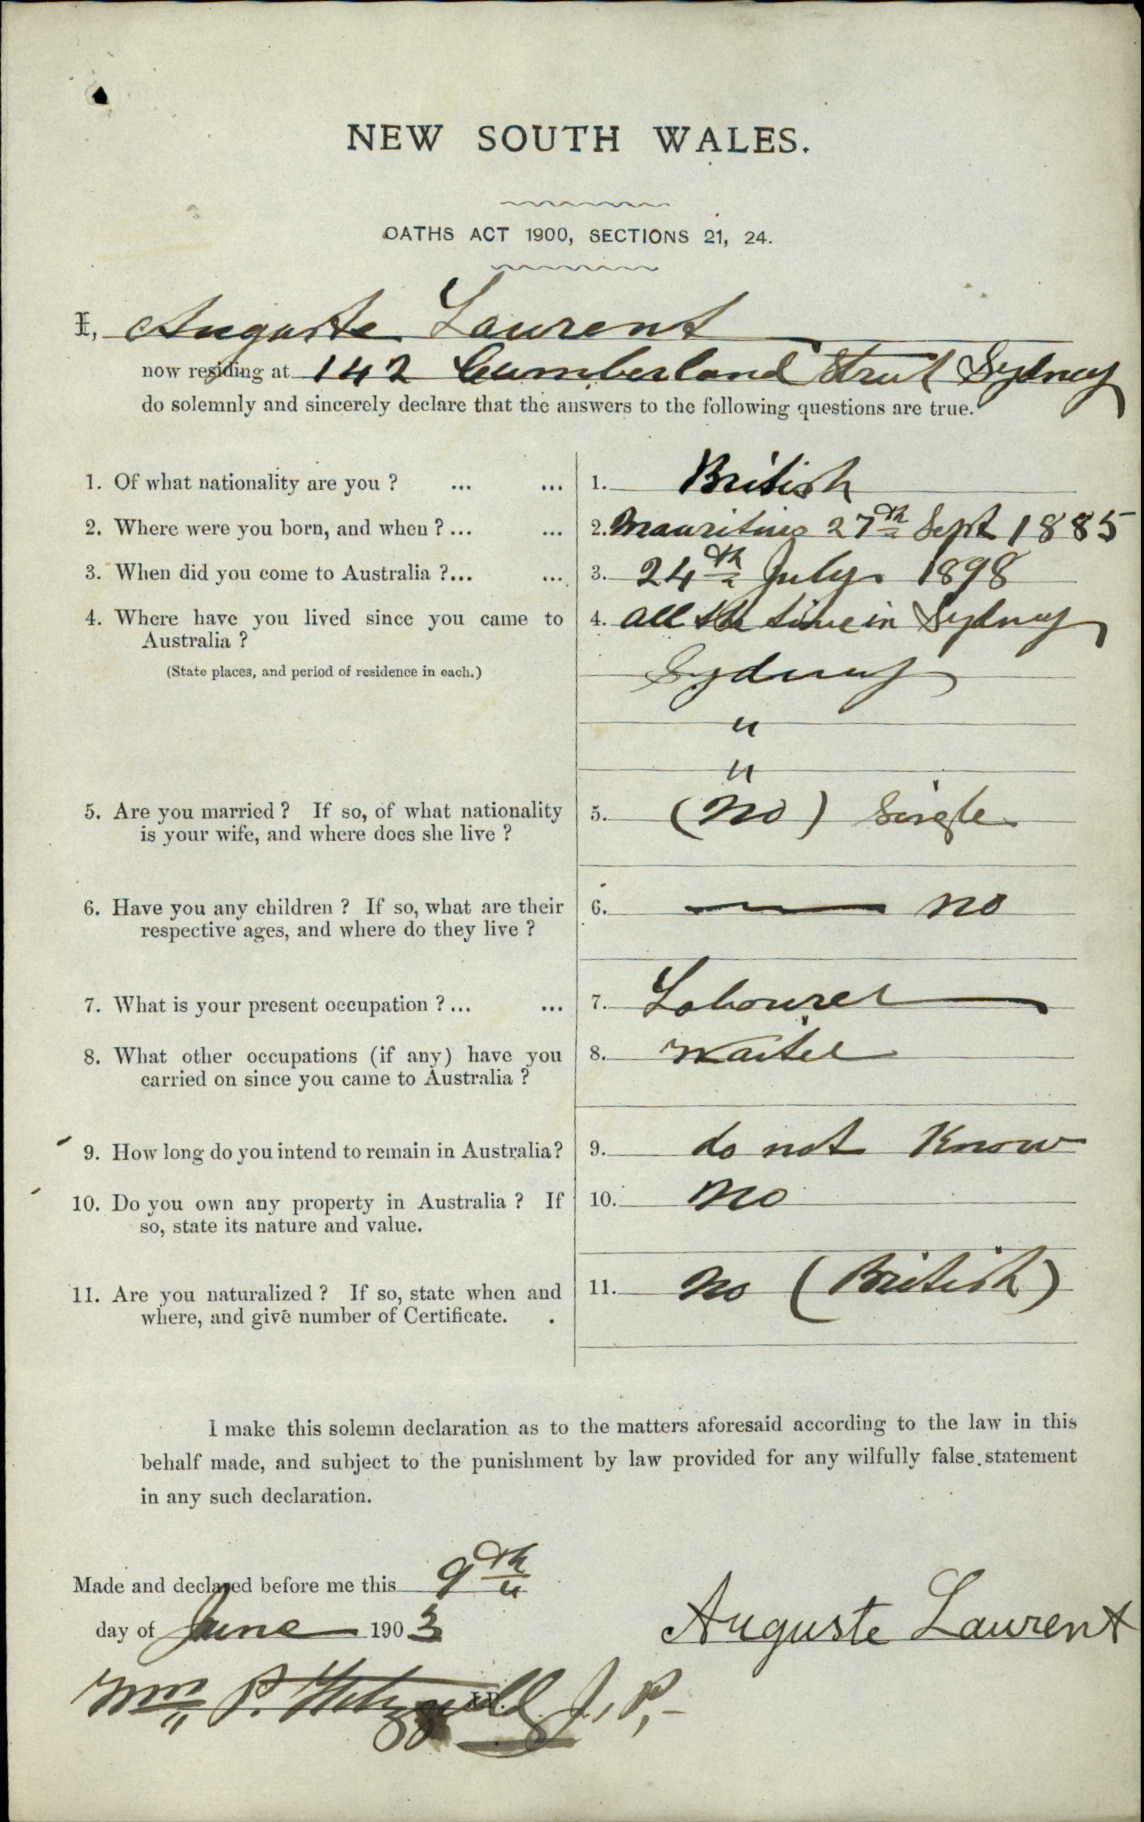 NEW SOUTH WALES.
OATHS ACT 1900, SECTIONS 21, 24.
I, Auguste Laurent
now residing at 142 Cumberland Street Sydney
do solemnly and sincerely declare that the answers to the following questions are true.
1. Of what nationality are you ? ... ... 1. British
2. Where were you born, and when ? ... ... 2. Mauritius 27th Sept 1885
3. When did you come to Australia ?... ... 3. 24th July 1898
4. Where have you lived since you came to 4. all the time in Sydney
Australia ?
(State places, and period of residence in each.) Sydney
"
"
5. Are you married ? If so, of what nationality 5. (no) Single
is your wife, and where does she live ?
6. Have you any children ? If so, what are their 6. — no
respective ages, and where do they live ?
7. What is your present occupation ? ... ... 7. Labourer
8. What other occupations (if any) have you 8. Waiter
carried on since you came to Australia ?
9. How long do you intend to remain in Australia? 9. do not Know
10. Do you own any property in Australia ? If 10. no
so, state its nature and value.
11. Are you naturalized ? If so, state when and 11. no (British)
where, and give number of Certificate.
I make this solemn declaration as to the matters aforesaid according to the law in this
behalf made, and subject to the punishment by law provided for any wilfully false statement
in any such declaration.
Made and declared before me this 9th
day of June 1903
Auguste Laurent
Wm P. J.P.